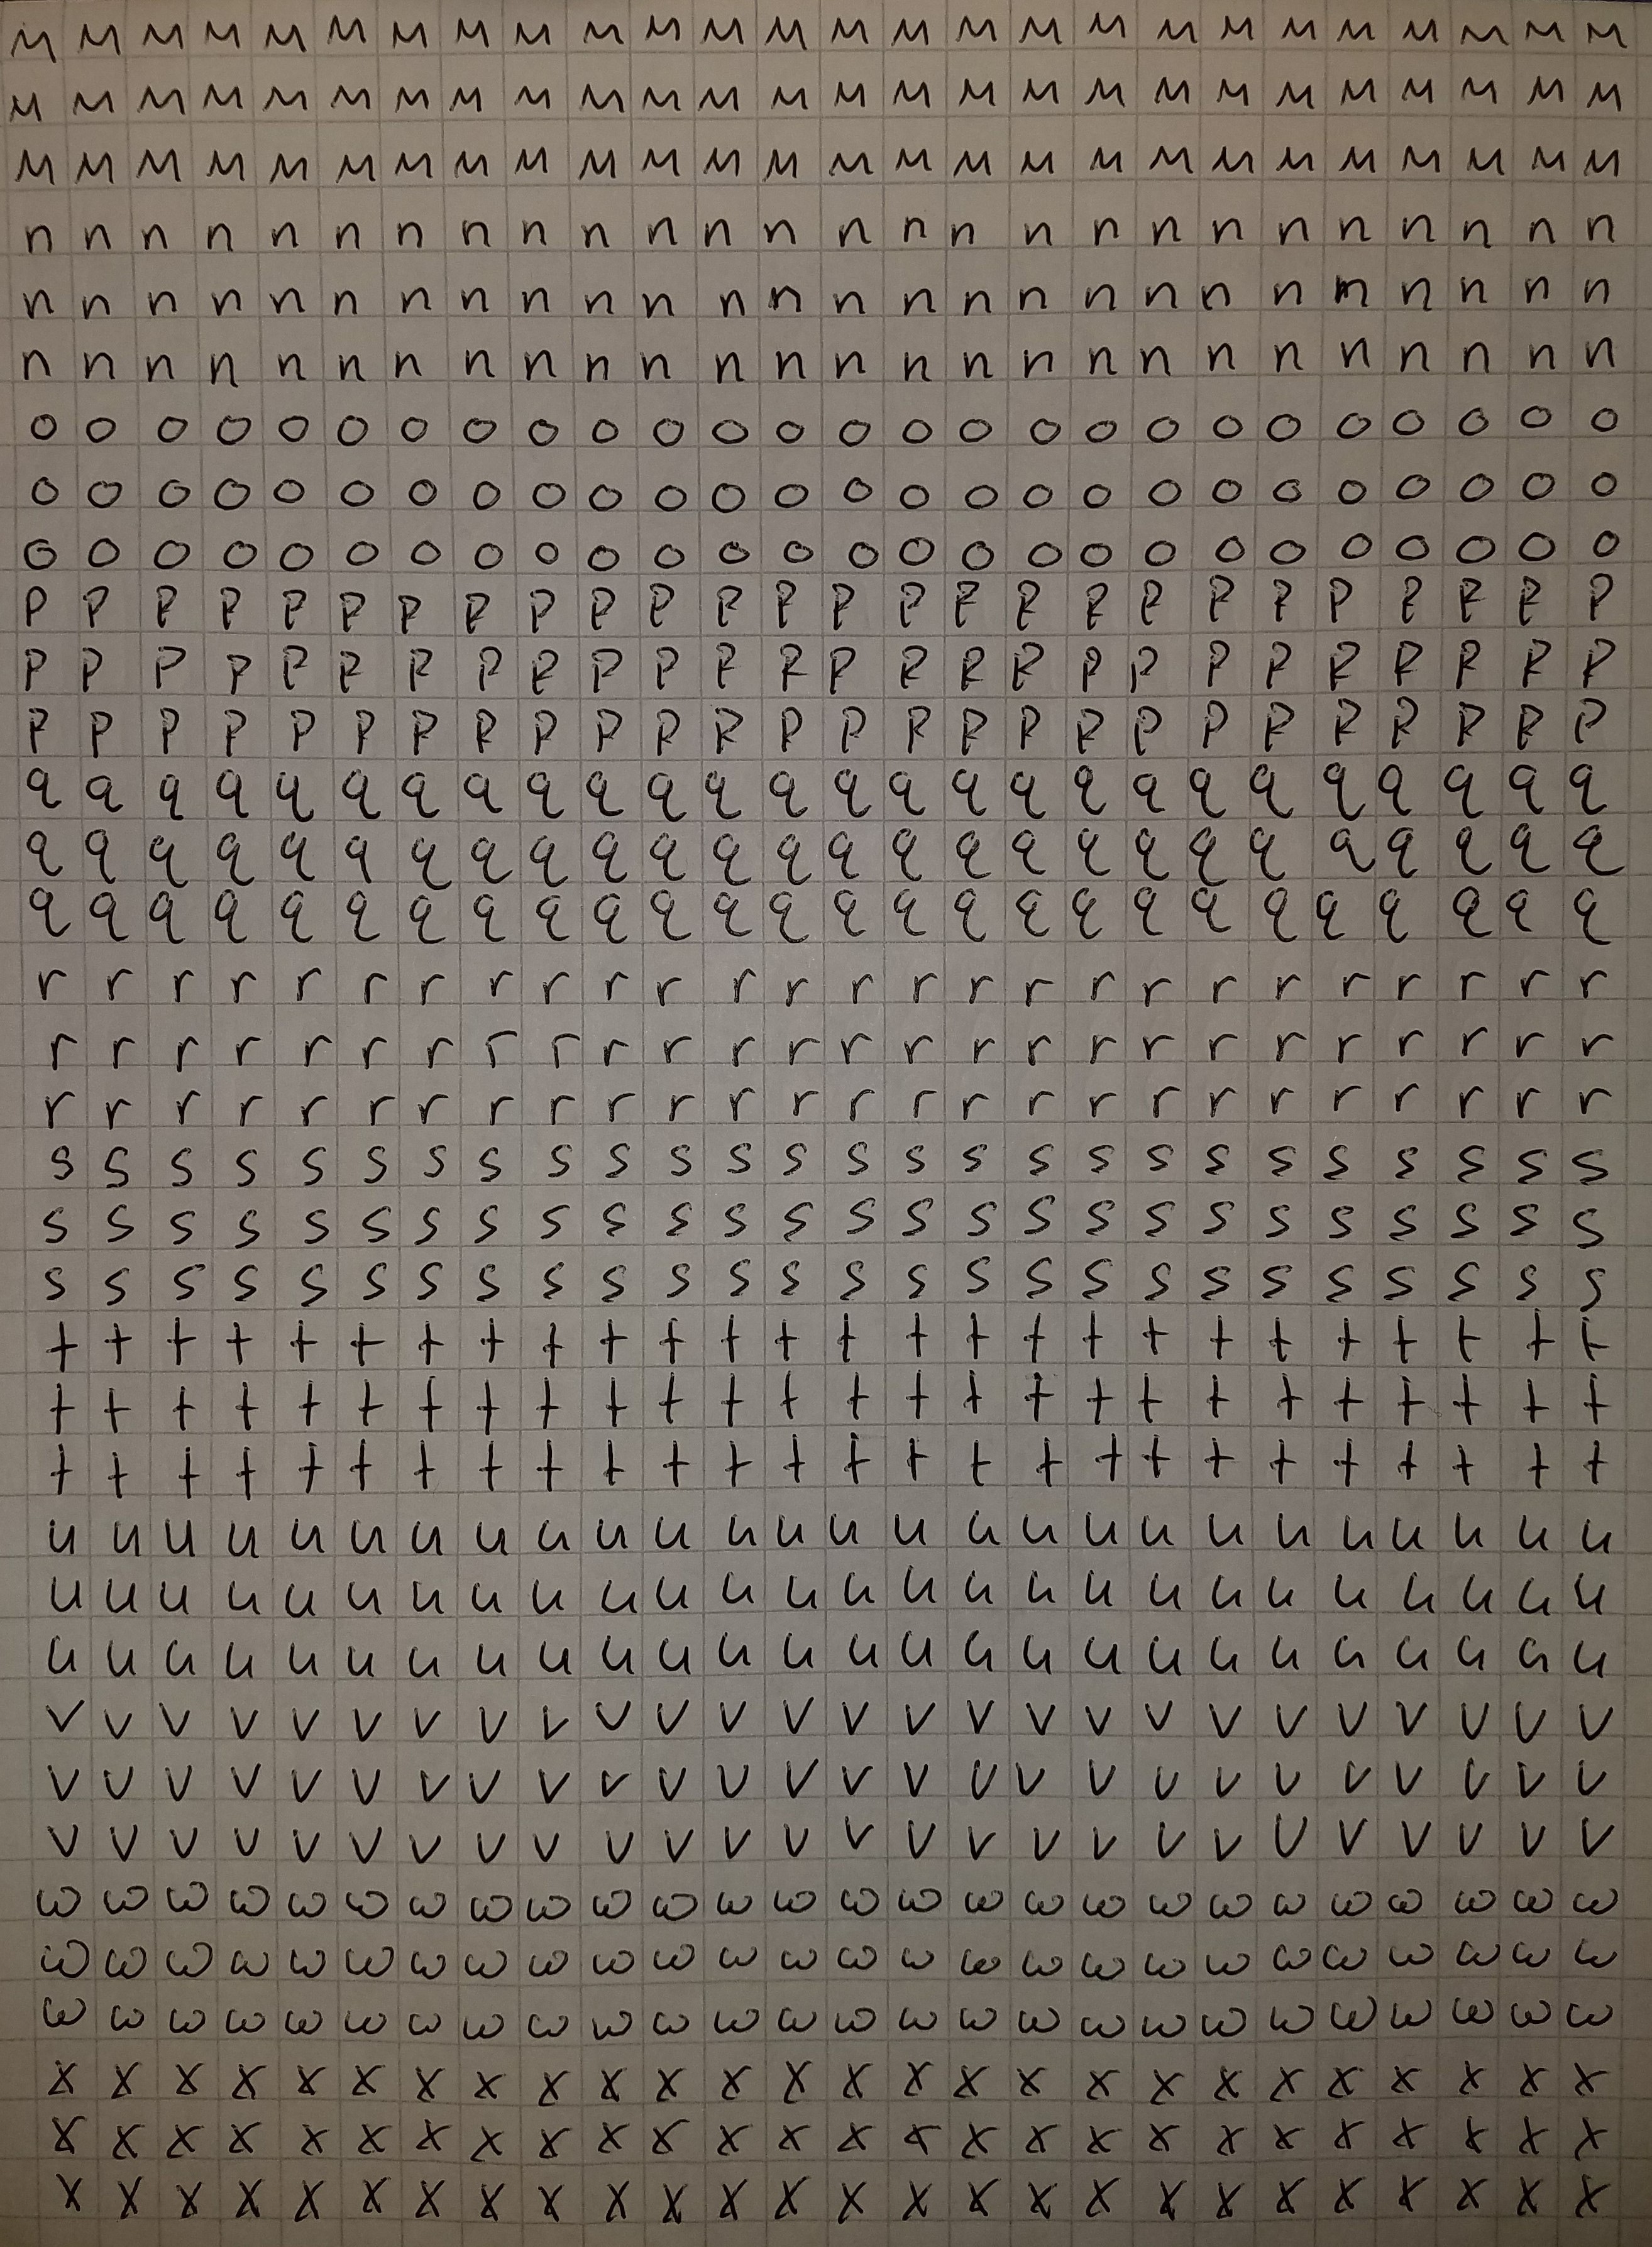 m m m m m m m m m m m m m m m m m m m m m m m m m m
m m m m m m m m m m m m m m m m m m m m m m m m m m
m m m m m m m m m m m m m m m m m m m m m m m m m m
n n n n n n n n n n n n n n n n n n n n n n n n n n
n n n n n n n n n n n n n n n n n n n n n n n n n n
n n n n n n n n n n n n n n n n n n n n n n n n n n
o o o o o o o o o o o o o o o o o o o o o o o o o o
o o o o o o o o o o o o o o o o o o o o o o o o o o
o o o o o o o o o o o o o o o o o o o o o o o o o o
p p p p p p p p p p p p p p p p p p p p p p p p p p
p p p p p p p p p p p p p p p p p p p p p p p p p p
p p p p p p p p p p p p p p p p p p p p p p p p p p
q q q q q q q q q q q q q q q q q q q q q q q q q q
q q q q q q q q q q q q q q q q q q q q q q q q q q
q q q q q q q q q q q q q q q q q q q q q q q q q q
r r r r r r r r r r r r r r r r r r r r r r r r r r
r r r r r r r r r r r r r r r r r r r r r r r r r r
r r r r r r r r r r r r r r r r r r r r r r r r r r
s s s s s s s s s s s s s s s s s s s s s s s s s s
s s s s s s s s s s s s s s s s s s s s s s s s s s
s s s s s s s s s s s s s s s s s s s s s s s s s s
t t t t t t t t t t t t t t t t t t t t t t t t t t
t t t t t t t t t t t t t t t t t t t t t t t t t t
t t t t t t t t t t t t t t t t t t t t t t t t t t
u u u u u u u u u u u u u u u u u u u u u u u u u u
u u u u u u u u u u u u u u u u u u u u u u u u u u
u u u u u u u u u u u u u u u u u u u u u u u u u u
v v v v v v v v v v v v v v v v v v v v v v v v v v
v v v v v v v v v v v v v v v v v v v v v v v v v v
v v v v v v v v v v v v v v v v v v v v v v v v v v
w w w w w w w w w w w w w w w w w w w w w w w w w w
w w w w w w w w w w w w w w w w w w w w w w w w w w
w w w w w w w w w w w w w w w w w w w w w w w w w w
x x x x x x x x x x x x x x x x x x x x x x x x x x
x x x x x x x x x x x x x x x x x x x x x x x x x x
x x x x x x x x x x x x x x x x x x x x x x x x x x